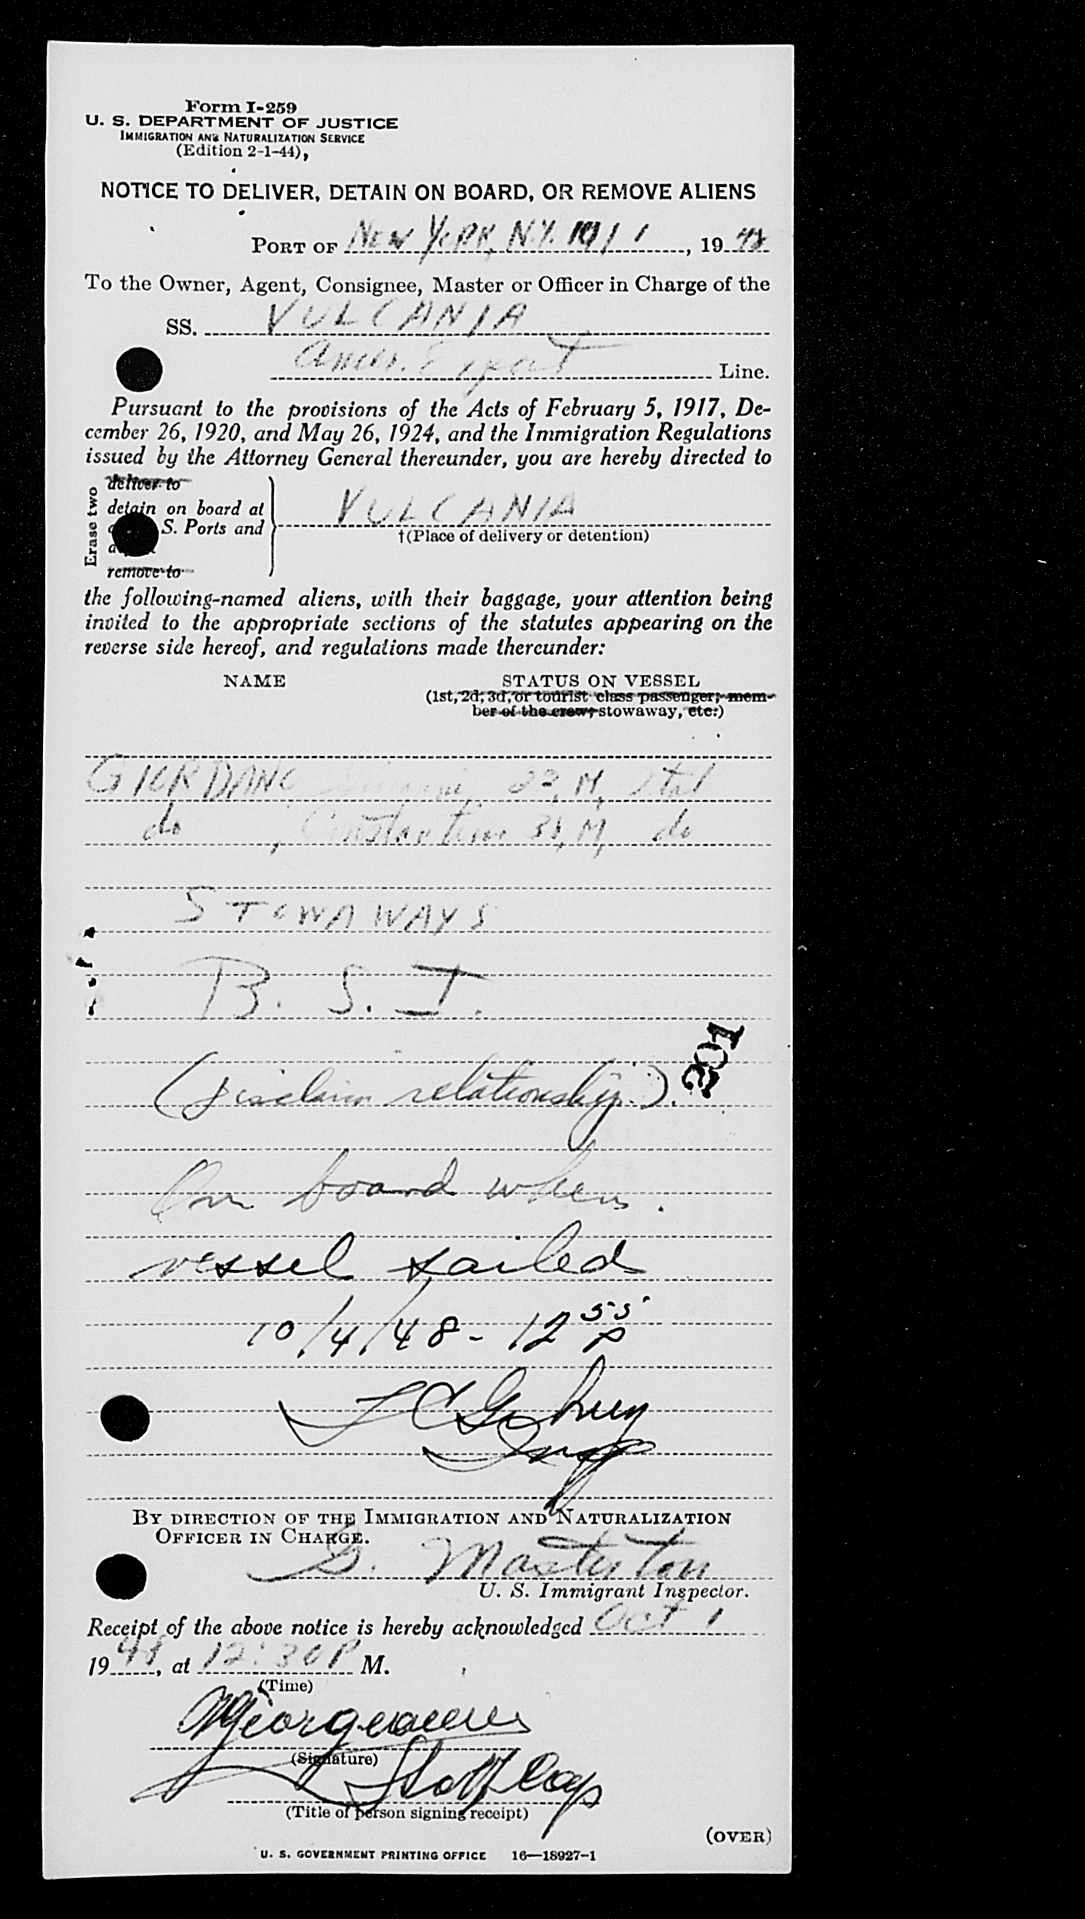 Form I-259
U. S. DEPARTMENT OF JUSTICE
IMMIGRATION AND NATURALIZATION SERVICE
(Edition 2-1-44)
NOTICE TO DELIVER, DETAIN ON BOARD, OR REMOVE ALIENS
PORT OF NEW YORK, N.Y. 10/1, 1948
To the Owner, Agent, Consignee, Master or Officer in Charge of the
SS. VULCANIA
Amer. Export Line.
Pursuant to the provisions of the Acts of February 5, 1917, De-
cember 26, 1920, and May 26, 1924, and the Immigration Regulations
issued by the Attorney General thereunder, you are hereby directed to
Erase two
deliver to
detain on board at
S. Ports and
remove to
VULCANIA
†(Place of delivery or detention)
the following-named aliens, with their baggage, your attention being
invited to the appropriate sections of the statutes appearing on the
reverse side hereof, and regulations made thereunder:
NAME STATUS ON VESSEL
(1st, 2d, 3d, or tourist class passenger; mem-
ber of the crew; stowaway, etc.)
GIORDANO 22, M, Ital
do, Constantino M, do
STOWAWAYS
B. S. I.
(Disclaim relationship).
201
On board when
vessel sailed
10/4/48 - 12 55 P
Insp
BY DIRECTION OF THE IMMIGRATION AND NATURALIZATION
OFFICER IN CHARGE.
G. Masterton
U. S. Immigrant Inspector.
Receipt of the above notice is hereby acknowledged Oct 1
1948, at 12:30 P M.
(Time)
(Signature)
(Title of person signing receipt)
(OVER)
U. S. GOVERNMENT PRINTING OFFICE 16—18927-1